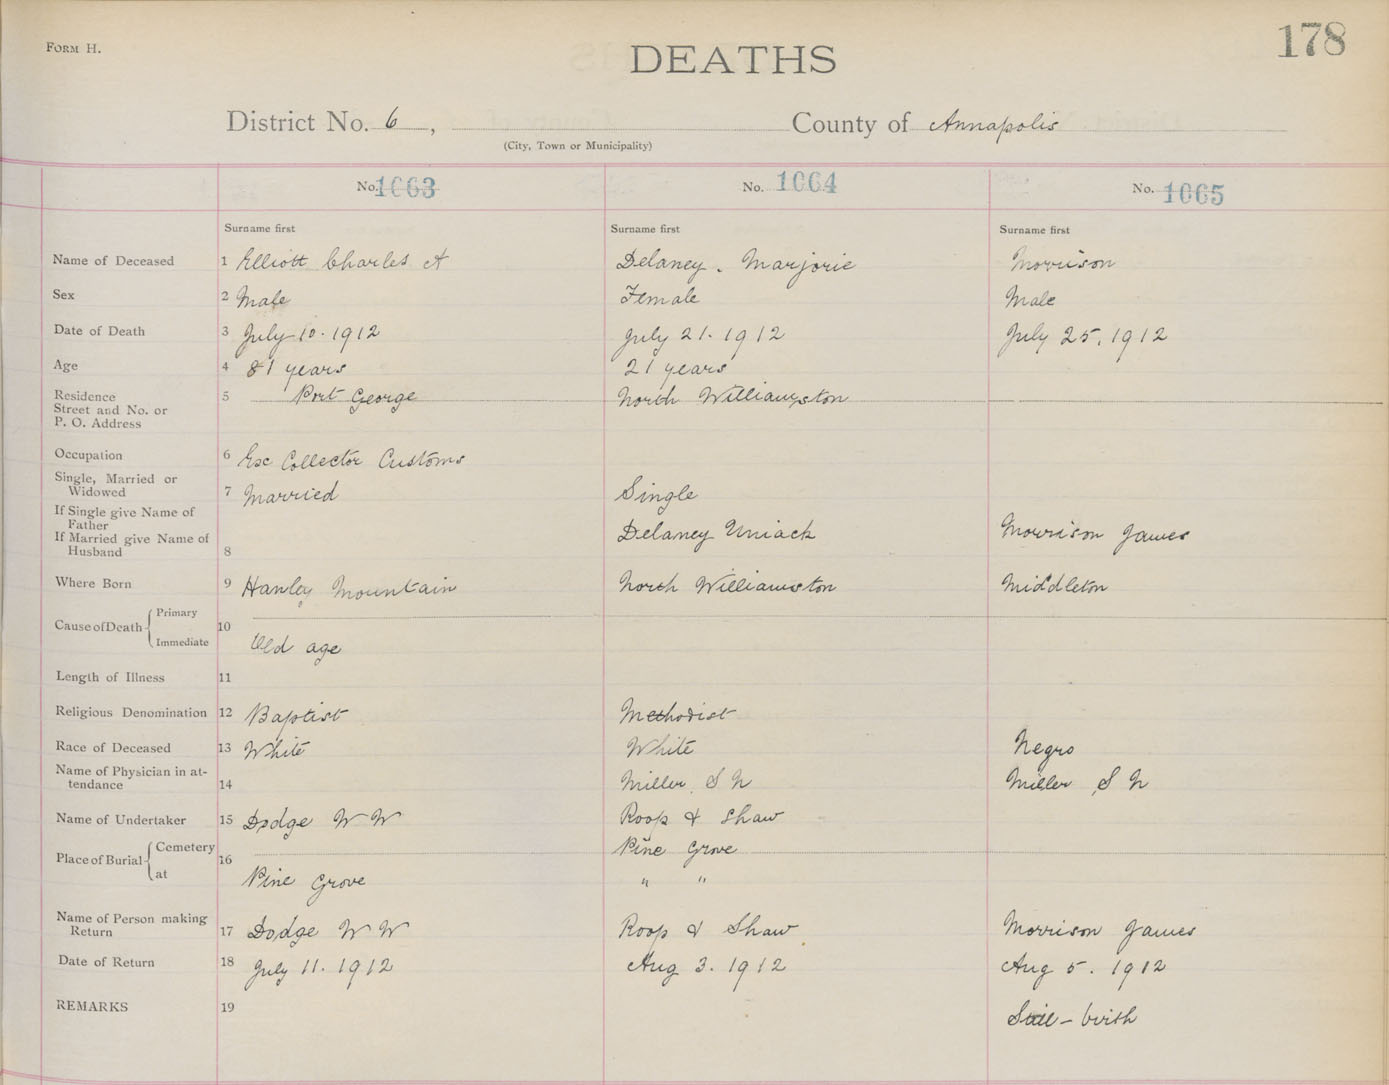 FORM H.
DEATHS
178
District No. 6, County of Annapolis
(City, Town or Municipality)
No. 1063 No. 1064 No. 1065
Surname first Surname first Surname first
Name of Deceased 1 Elliott Charles A Delaney. Marjorie Morrison
Sex 2 Male Female Male
Date of Death 3 July 10. 1912 July 21. 1912 July 25. 1912
Age 4 81 years 21 years
Residence 5 Port George North Williamston
Street and No. or
P. O. Address
Occupation 6 Exc Collector Customs
Single, Married or
Widowed 7 Married Single
If Single give Name of
Father
If Married give Name of Delaney Uniack Morrison James
Husband 8
Where Born 9 Hanley Mountain North Williamston Middleton
Cause of Death Primary
10
Immediate Old age
Length of Illness 11
Religious Denomination 12 Baptist Methodist
Race of Deceased 13 White White Negro
Name of Physician in at-
tendance 14 Miller, S N Miller, S N
Name of Undertaker 15 Dodge W W Roop & Shaw
Place of Burial Cemetery Pine Grove
16
at Pine Grove " "
Name of Person making
Return 17 Dodge W W Roop & Shaw Morrison James
Date of Return 18 July 11. 1912 Aug 3. 1912 Aug 5. 1912
REMARKS 19 Still-birth